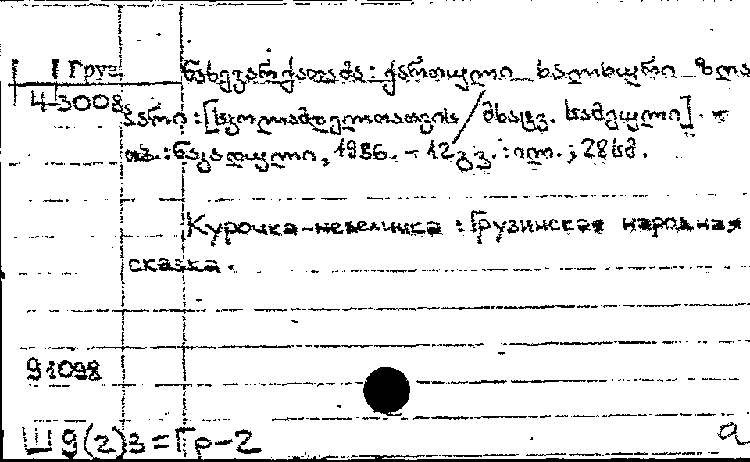 Груз
4-3008
ნახევარქათამა: ქართული ხალხური ზღა
პარი: [სკოლამდელთათვის / მხატვ. სამეული]. -
თბ.: ნაკადული, 1986. - 12 გვ.: ილ.; 28 სმ.
Курочка-невеличка : Грузинская народная
сказка.
91098
Ш 9(2)3=Гр-2
a